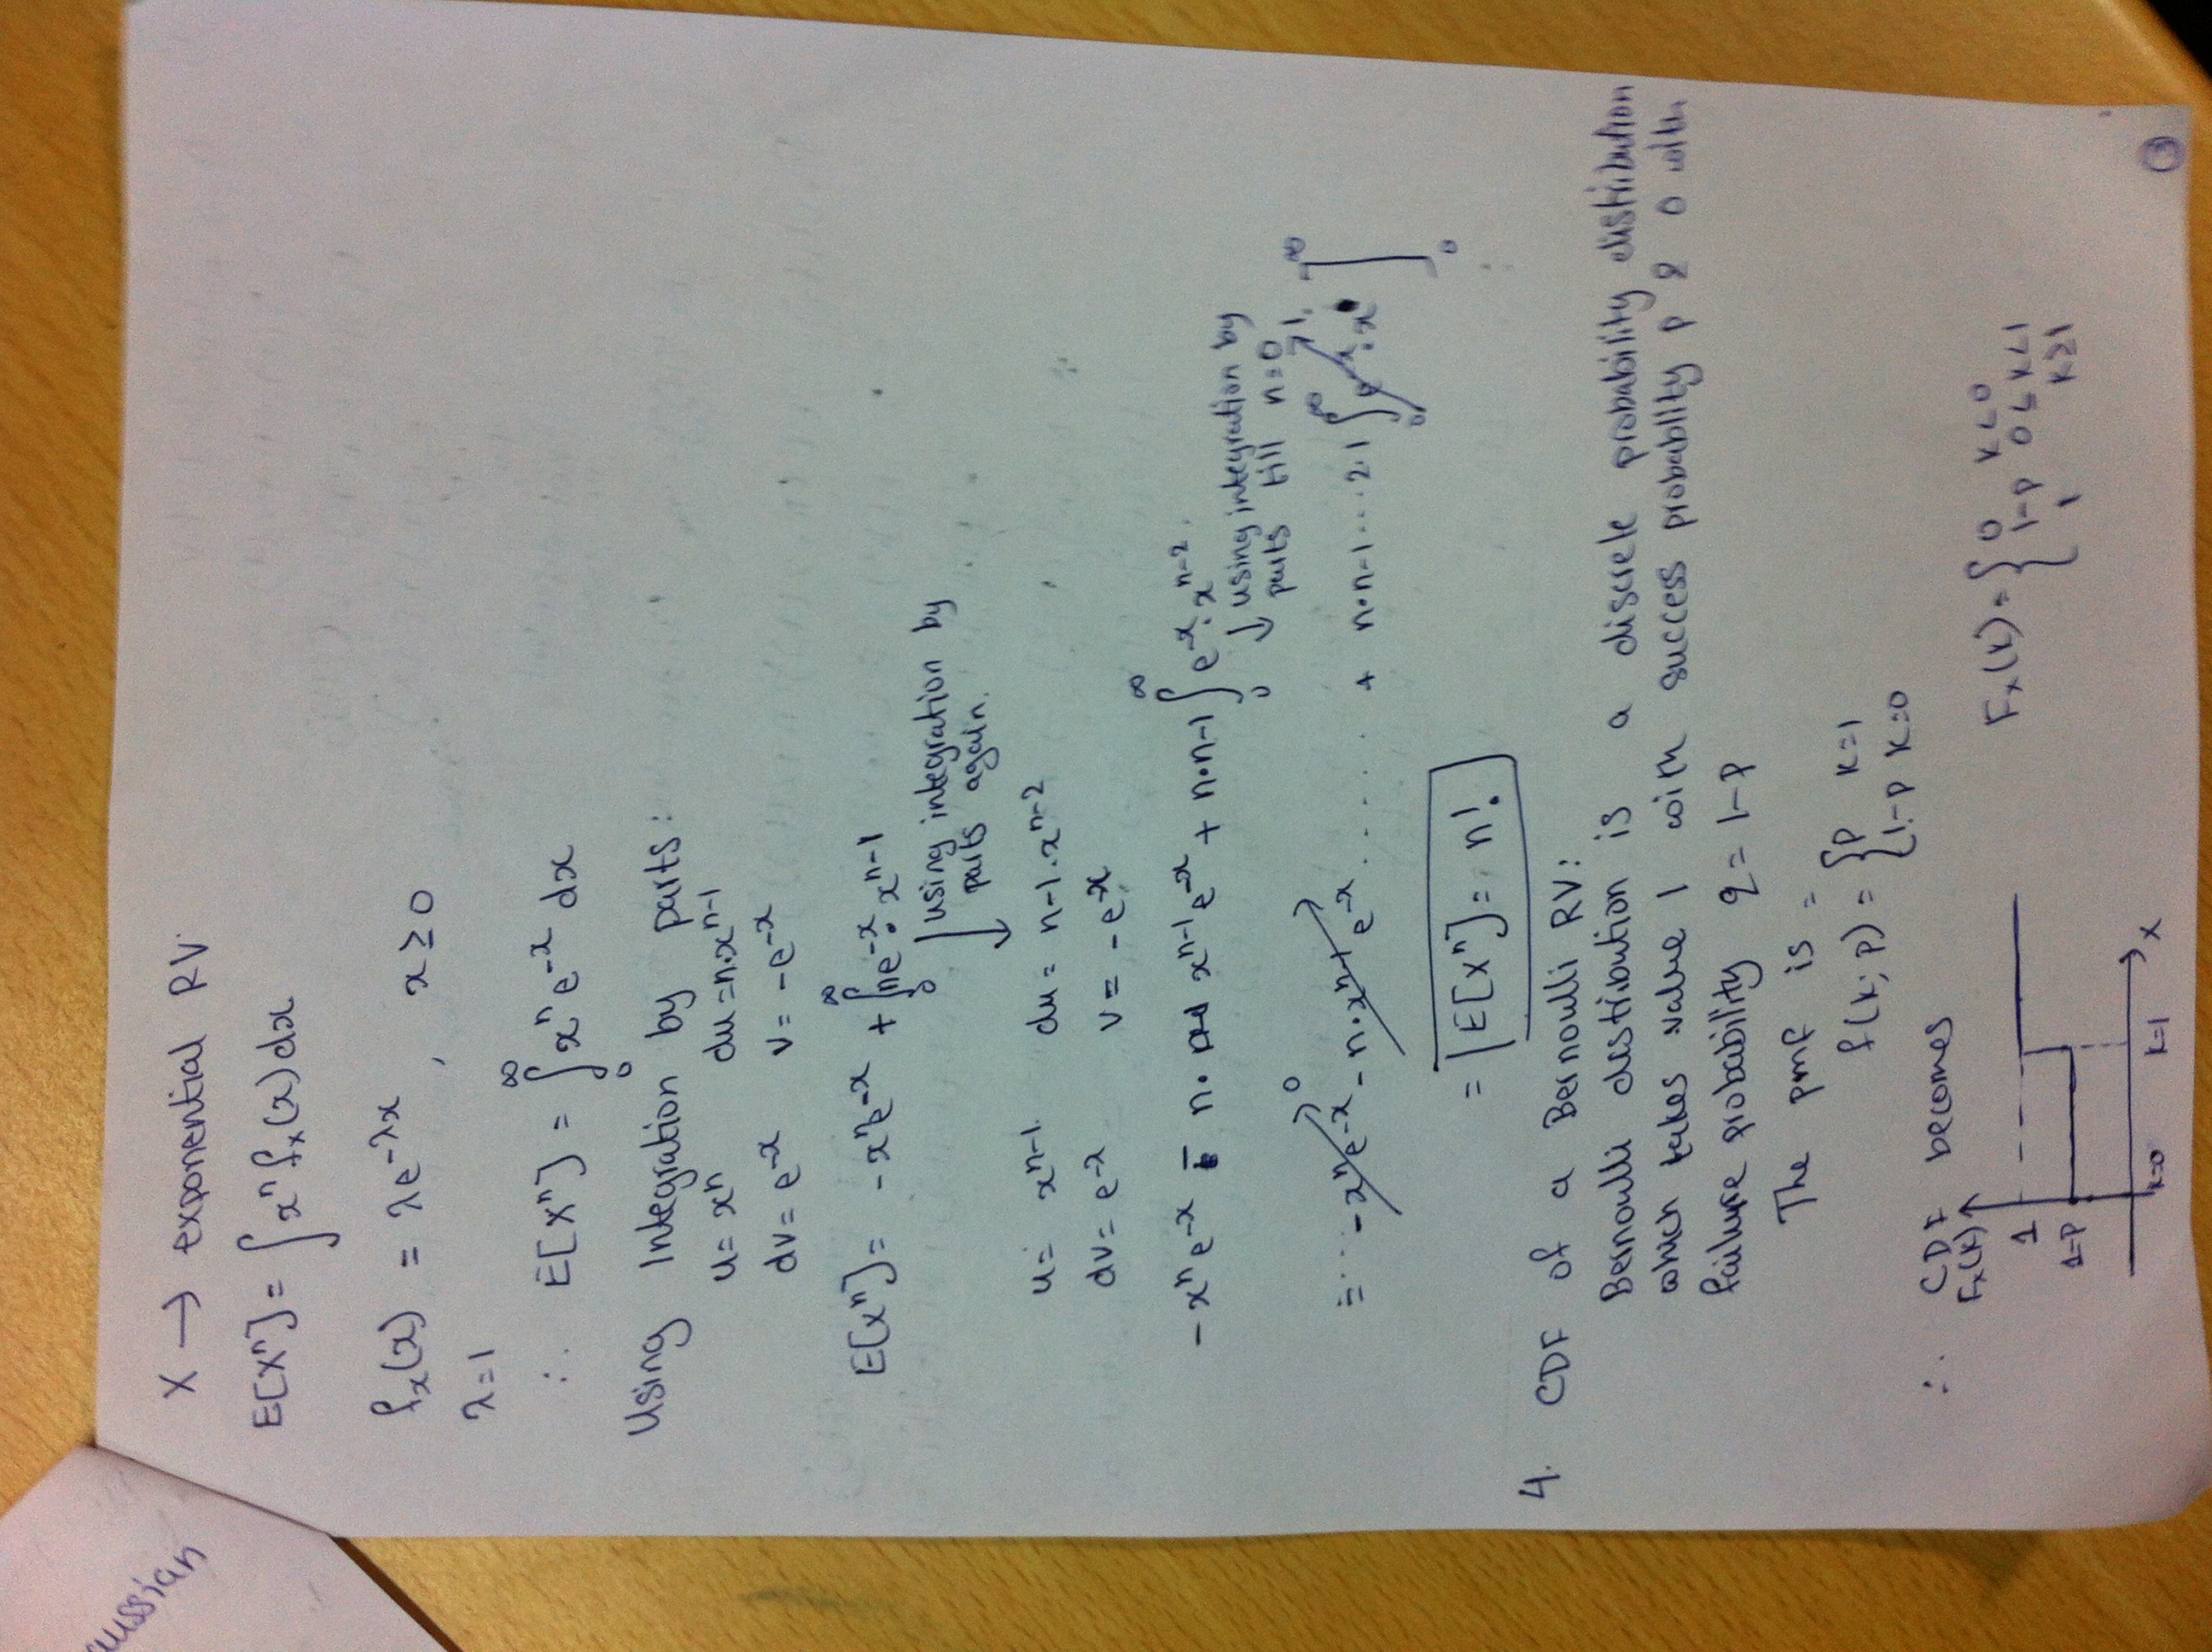 aussian
X → exponential RV
E[Xⁿ] = ∫ xⁿ fₓ(x) dx
fₓ(x) = λe^{-λx} , x ≥ 0
λ = 1
∴ E[Xⁿ] = ∫₀^∞ xⁿ e^{-x} dx
Using Integration by parts:
u = xⁿ du = n·x^{n-1}
dv = e^{-x} v = -e^{-x}
E[xⁿ] = -xⁿe^{-x} + ∫₀^∞ ne^{-x}· x^{n-1}
using integration by
parts again.
u = x^{n-1} du = n-1·x^{n-2}
dv = e^{-x} v = -e^{-x}
-xⁿ e^{-x} - n· x^{n-1} e^{-x} + n·n-1 ∫₀^∞ e^{-x}· x^{n-2}
↓ using integration by
parts till n=0
= ... -xⁿe^{-x} → 0 - n·x^{n-1} e^{-x} ...... + n·n-1...2·1 ∫₀^∞ e^{-x}·x⁰ → 1 ]₀^∞
= E[Xⁿ] = n!
4. CDF of a Bernoulli RV:
Bernoulli distribution is a discrete probability distribution
which takes value 1 with success probablity p & 0 with
failure probability q = 1-p
The pmf is =
f(k; p) = { p k=1
1-p k=0
∴ CDF becomes
Fₓ(k)
1
1-P
k=0 k=1 X
Fₓ(k) = { 0 k<0
1-p 0≤k<1
1 k≥1
3